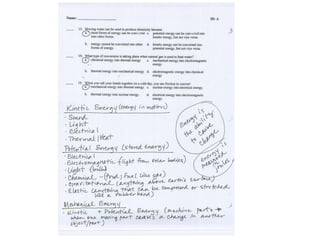 Name:
ID: A
13. Moving water can be used to produce electricity because
a. most forms of energy can be converted into other forms.
c. potential energy can be converted into kinetic energy, but not vice versa.
b. energy cannot be converted into other forms of energy.
d. kinetic energy can be converted into potential energy, but not vice versa.
14. What type of conversion is taking place when natural gas is used to heat water?
a. chemical energy into thermal energy
c. mechanical energy into electromagnetic energy
b. thermal energy into mechanical energy
d. electromagnetic energy into chemical energy
15. When you rub your hands together on a cold day, you use friction to convert
a. mechanical energy into thermal energy.
c. nuclear energy into electrical energy.
b. thermal energy into nuclear energy.
d. electrical energy into electromagnetic energy.
Kinetic Energy (energy in motion)
- Sound
- Light
- Electrical
- Thermal/Heat
Energy is the ability to cause change
Potential Energy (stored energy)
- Electrical
- Electromagnetic (light from solar bodies)
- Light
- Chemical - (food, fuel like gas)
- Gravitational (anything above earth's surface)
- Elastic (anything that can be compressed or stretched like a rubberband)
Energy is measured joules
Mechanical Energy
- Kinetic + Potential Energy (machine parts → when one moving part causes a change in another object/part)